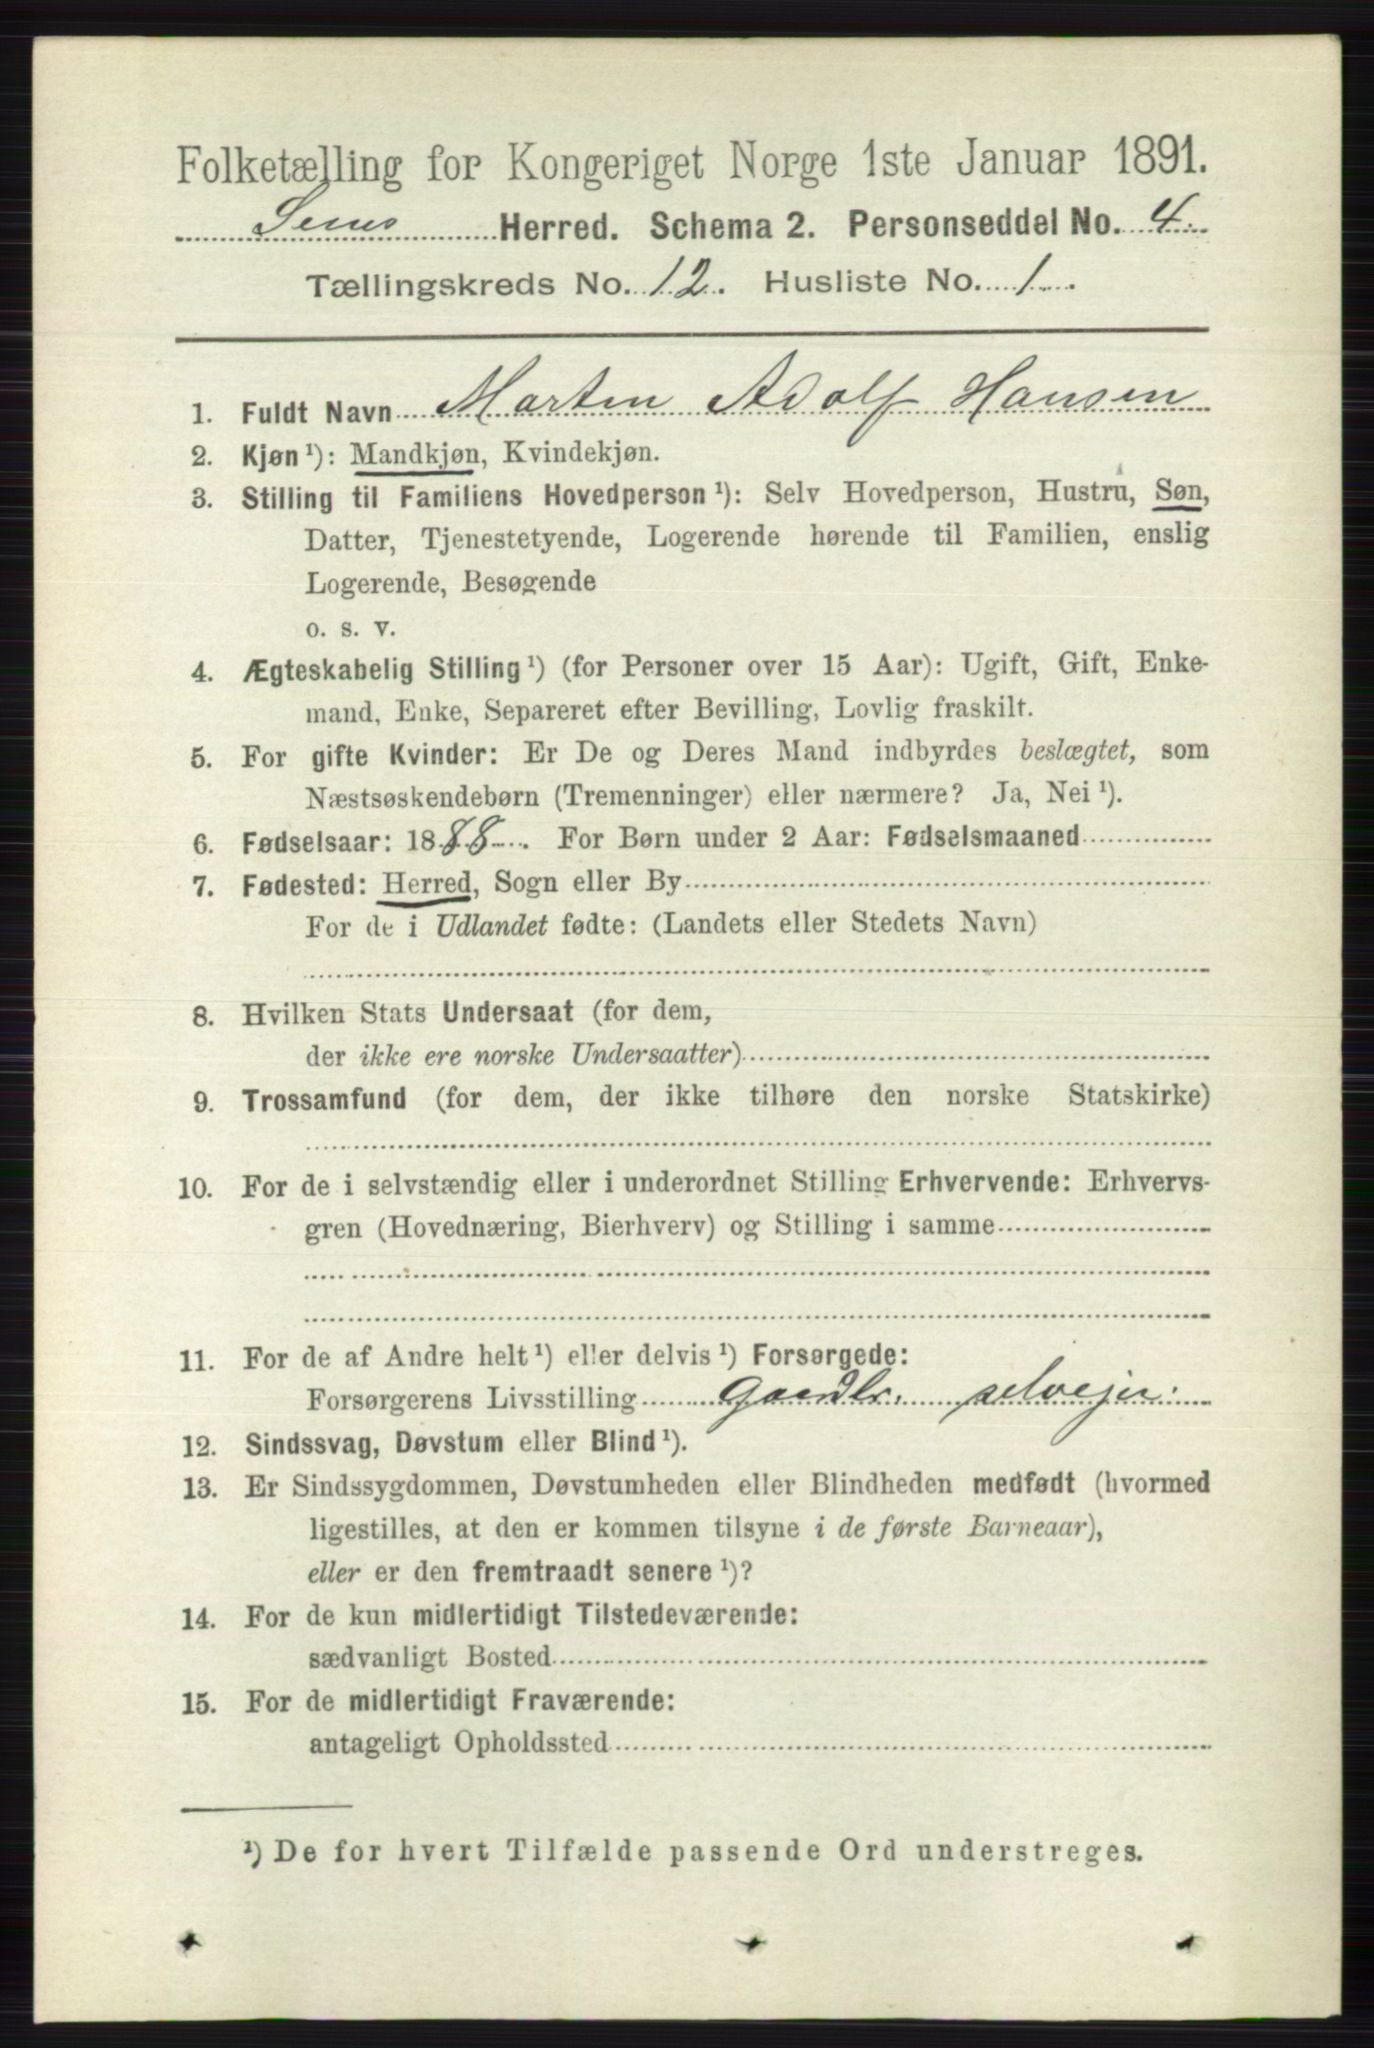 Folketælling for Kongeriget Norge 1ste Januar 1891.
Sems Herred. Schema 2. Personseddel No. 4.
Tællingskreds No. 12. Husliste No. 1.
1. Fuldt Navn Martin Adolf Hansen
2. Kjøn¹): Mandkjøn, Kvindekjøn.
3. Stilling til Familiens Hovedperson¹): Selv Hovedperson, Hustru, Søn,
Datter, Tjenestetyende, Logerende hørende til Familien, enslig
Logerende, Besøgende
o. s. v.
4. Ægteskabelig Stilling¹) (for Personer over 15 Aar): Ugift, Gift, Enke-
mand, Enke, Separeret efter Bevilling, Lovlig fraskilt.
5. For gifte Kvinder: Er De og Deres Mand indbyrdes beslægtet, som
Næstsøskendebørn (Tremenninger) eller nærmere? Ja, Nei¹).
6. Fødselsaar: 1888. For Børn under 2 Aar: Fødselsmaaned
7. Fødested: Herred, Sogn eller By
For de i Udlandet fødte: (Landets eller Stedets Navn)
8. Hvilken Stats Undersaat (for dem,
der ikke ere norske Undersaatter)
9. Trossamfund (for dem, der ikke tilhøre den norske Statskirke)
10. For de i selvstændig eller i underordnet Stilling Erhvervende: Erhvervs-
gren (Hovednæring, Bierhverv) og Stilling i samme
11. For de af Andre helt¹) eller delvis¹) Forsørgede:
Forsørgerens Livsstilling Gaardbr. selvejer.
12. Sindssvag, Døvstum eller Blind¹).
13. Er Sindssygdommen, Døvstumheden eller Blindheden medfødt (hvormed
ligestilles, at den er kommen tilsyne i de første Barneaar),
eller er den fremtraadt senere¹)?
14. For de kun midlertidigt Tilstedeværende:
sædvanligt Bosted
15. For de midlertidigt Fraværende:
antageligt Opholdssted
¹) De for hvert Tilfælde passende Ord understreges.